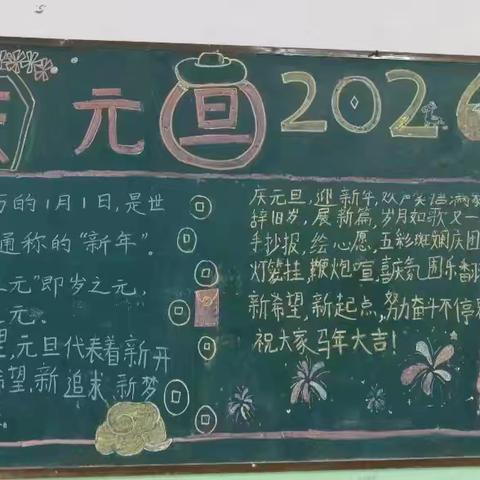 庆元旦2026
历的1月1日,是世
通称的“新年”。
元”即岁之元,
元.
望,元旦代表着新开
希望,新追求,新梦
庆元旦,迎新年,欢声笑语满
辞旧岁,展新篇,岁月如歌又一
手抄报,绘心愿,五彩斑斓庆团
灯笼挂,鞭炮喧,喜庆氛围乐翻
新希望,新起点,努力奋斗不停
祝大家马年大吉!